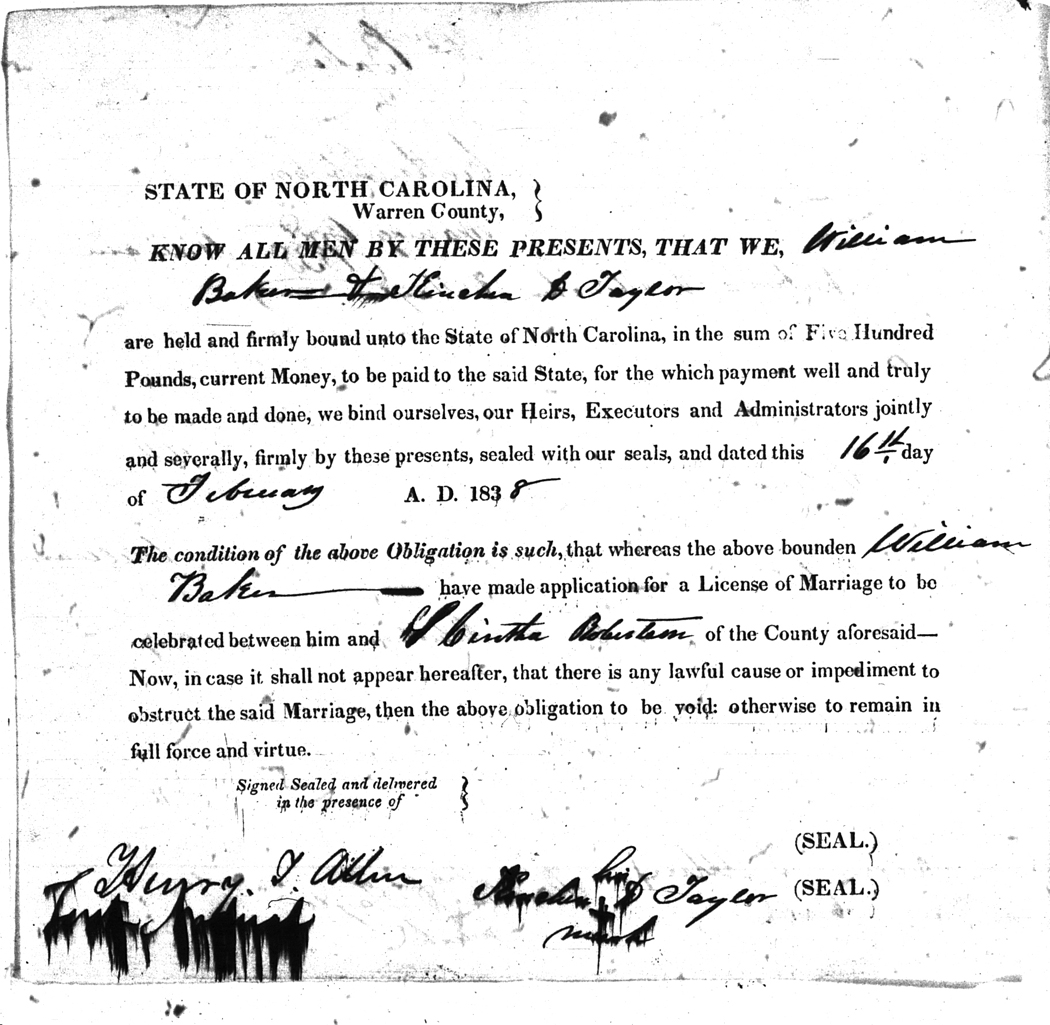 STATE OF NORTH CAROLINA, }
Warren County,
KNOW ALL MEN BY THESE PRESENTS, THAT WE, William
Baker & Kinchen D Taylor
are held and firmly bound unto the State of North Carolina, in the sum of Five Hundred
Pounds, current Money, to be paid to the said State, for the which payment well and truly
to be made and done, we bind ourselves, our Heirs, Executors and Administrators jointly
and severally, firmly by these presents, sealed with our seals, and dated this 16th day
of February A. D. 1838
The condition of the above Obligation is such, that whereas the above bounden William
Baker have made application for a License of Marriage to be
celebrated between him and Cintha Robertson of the County aforesaid—
Now, in case it shall not appear hereafter, that there is any lawful cause or impediment to
obstruct the said Marriage, then the above obligation to be void: otherwise to remain in
full force and virtue.
Signed Sealed and delivered }
in the presence of
(SEAL.)
Henry. T. Allen
his
Kinchen D Taylor (SEAL.)
mark